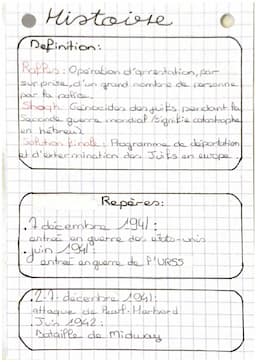 Histoire
Definition:
Raffles: Opération d'arrestation, par
surprise, d'un grand nombre de personne
par la police.
Shoah: Génocides des juifs pendant la
Seconde guerre mondial (signifie catastrophe
en hébreu)
Solution finale: Programme de déportation
et d'extermination des Juifs en europe.
Repères:
. 7 décembre 1941:
entreé en guerre des états-unis
. juin 1941:
entreé en guerre de l'URSS
. 7 décembre 1941:
attaque de Pearl-Harbord
Juin 1942:
Bataille de Midway